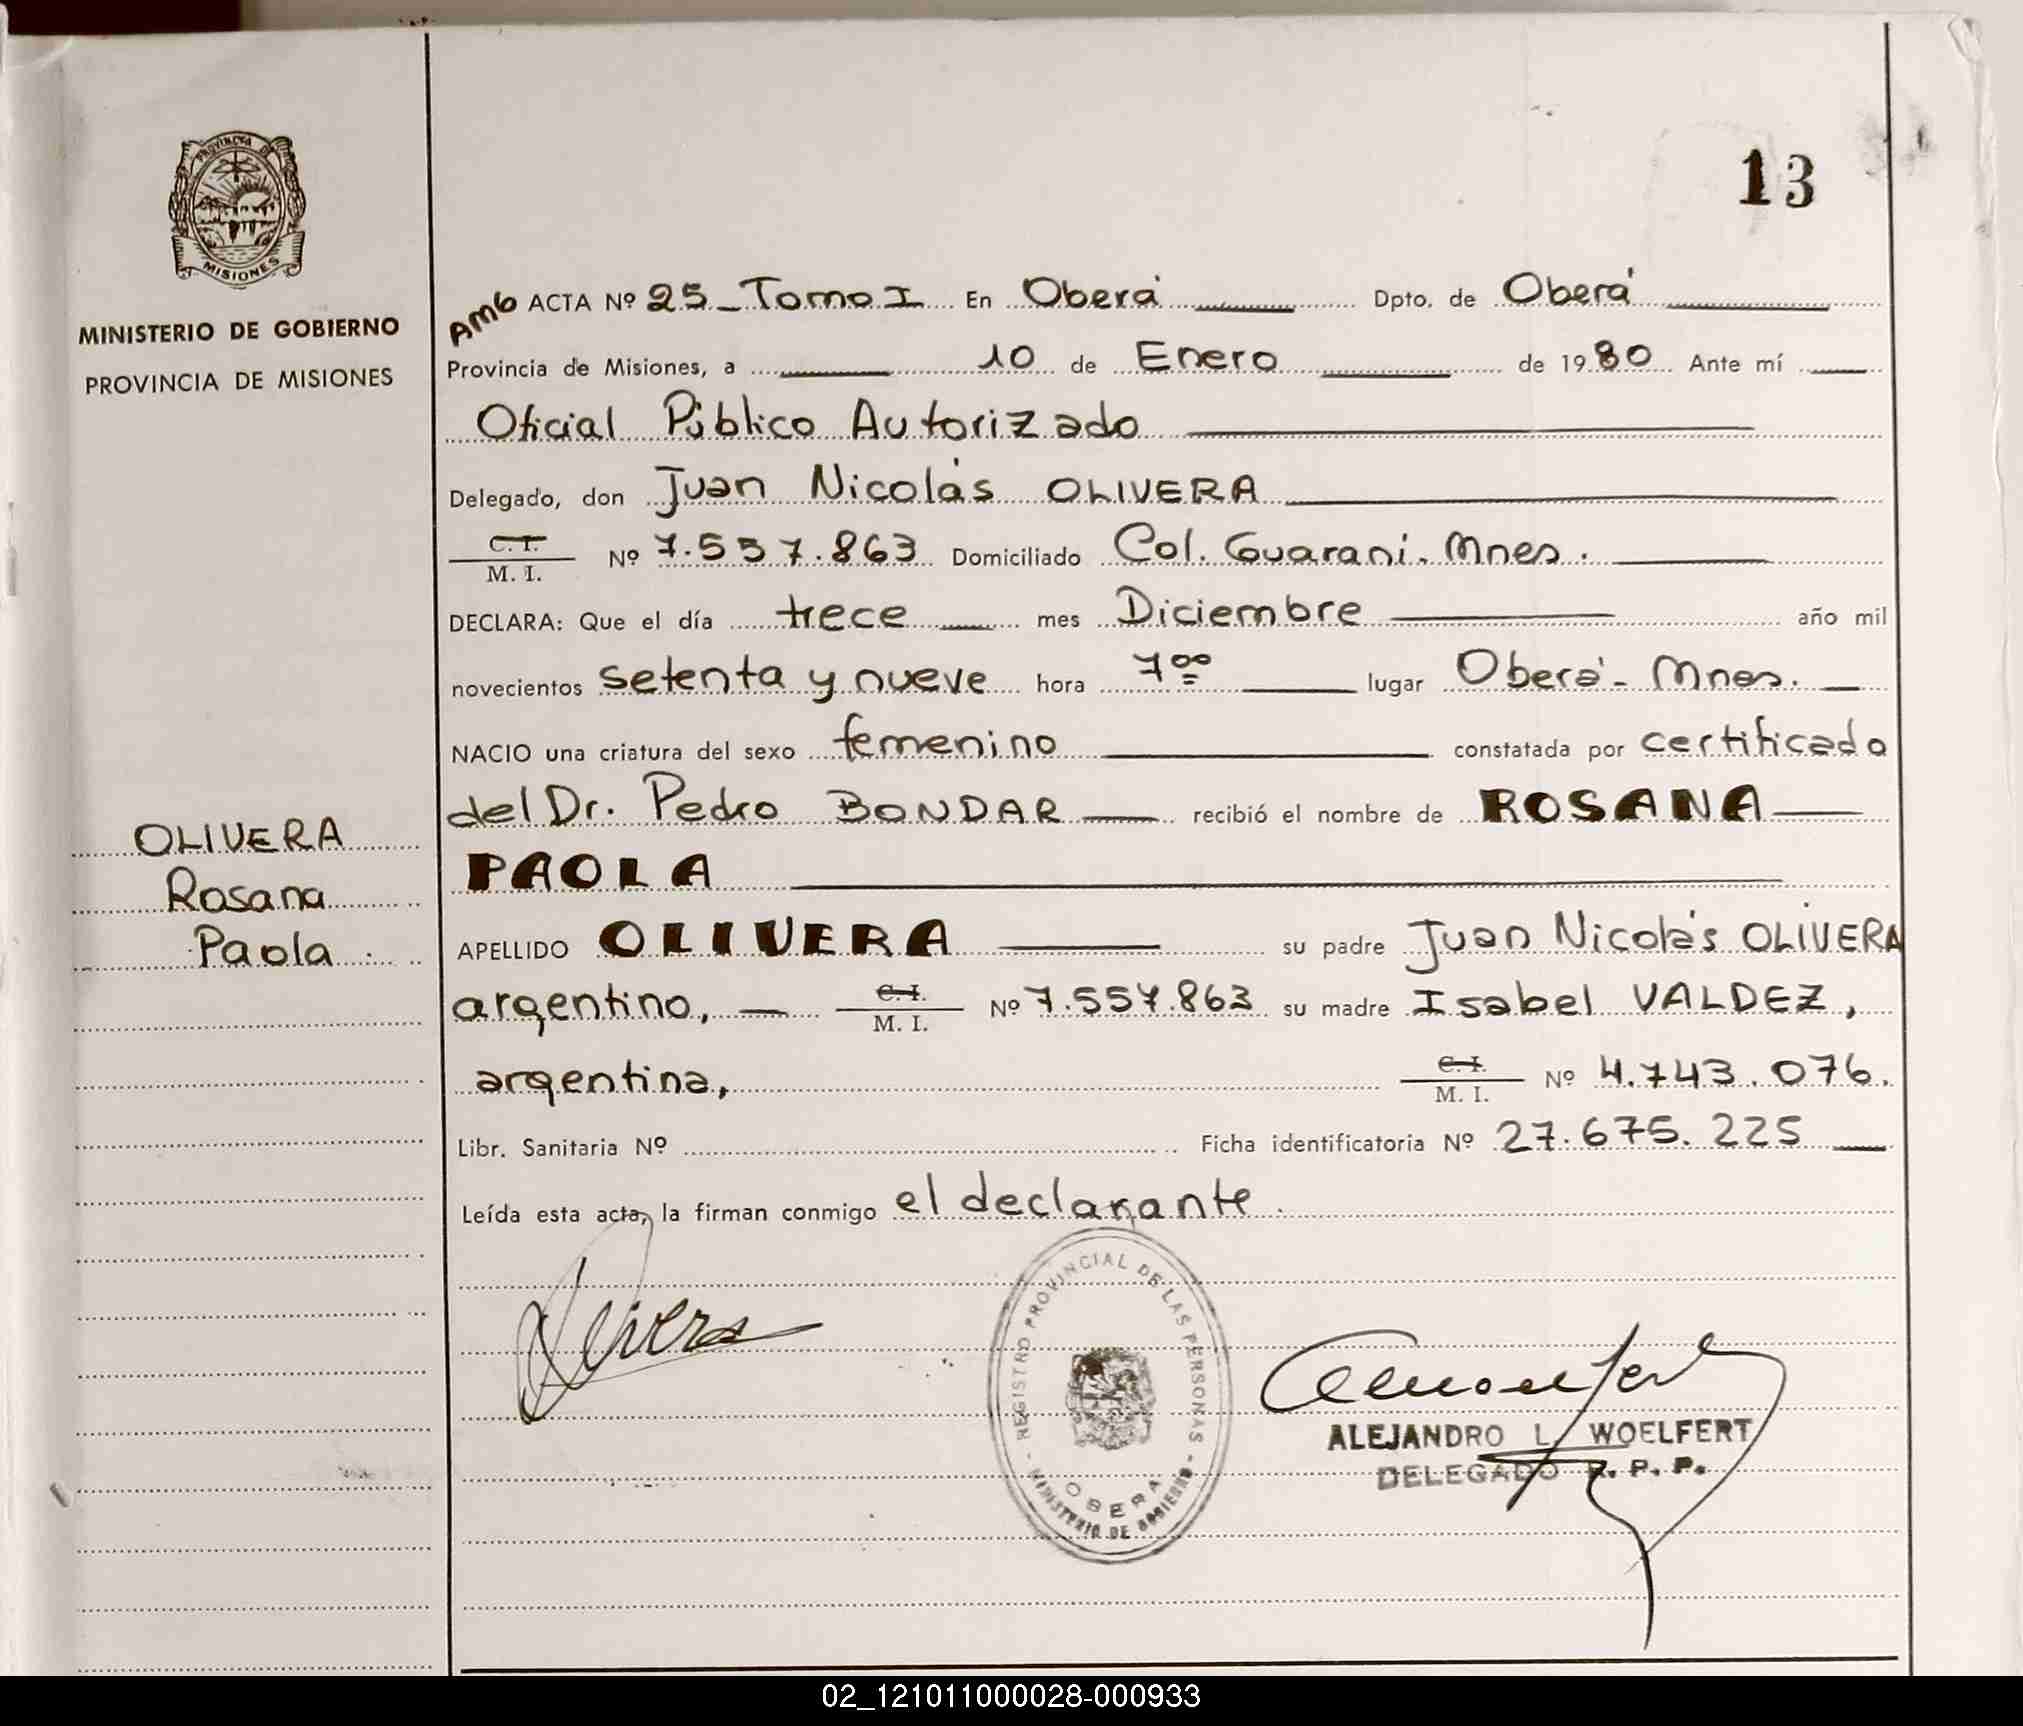 PROVINCIA DE
MISIONES
MINISTERIO DE GOBIERNO
PROVINCIA DE MISIONES
13
AMB ACTA Nº 25_ Tomo I En Oberá Dpto. de Oberá
Provincia de Misiones, a 10 de Enero de 1980 Ante mí
Oficial Público Autorizado
Delegado, don Juan Nicolás OLIVERA
C. I.
M. I. Nº 7.557.863 Domiciliado Col. Guarani. Mnes.
DECLARA: Que el día trece mes Diciembre año mil
novecientos setenta y nueve hora 7⁰⁰ lugar Oberá - Mnes.
NACIO una criatura del sexo femenino constatada por certificado
del Dr. Pedro BONDAR recibió el nombre de ROSANA
PAOLA
APELLIDO OLIVERA su padre Juan Nicolás OLIVERA
argentino, C. I.
M. I. Nº 7.557.863 su madre Isabel VALDEZ,
argentina, C. I.
M. I. Nº 4.743.076.
Libr. Sanitaria Nº Ficha identificatoria Nº 27.675.225
Leída esta acta, la firman conmigo el declarante.
OLIVERA
Rosana
Paola.
Olivera
REGISTRO PROVINCIAL DE LAS PERSONAS
OBERA
MINISTERIO DE GOBIERNO
ALEJANDRO L. WOELFERT
DELEGADO R. P. P.
02_121011000028-000933